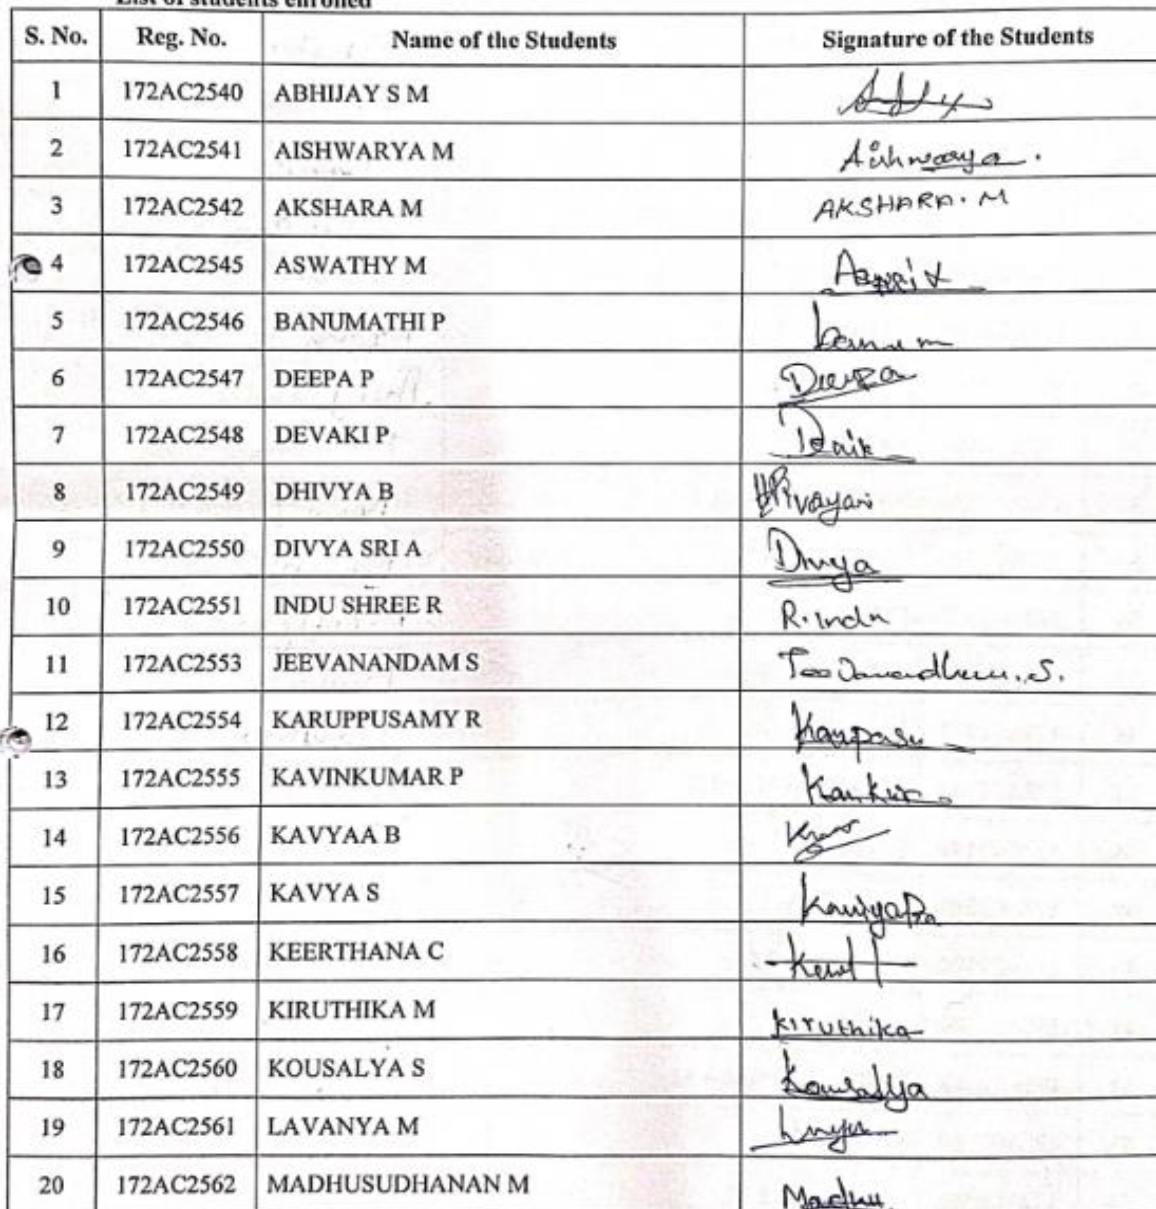 List of students enrolled
S. No. Reg. No. Name of the Students Signature of the Students
1 172AC2540 ABHIJAY S M
2 172AC2541 AISHWARYA M Aishwarya.
3 172AC2542 AKSHARA M AKSHARA. M
4 172AC2545 ASWATHY M
5 172AC2546 BANUMATHI P
6 172AC2547 DEEPA P Deepa
7 172AC2548 DEVAKI P
8 172AC2549 DHIVYA B
9 172AC2550 DIVYA SRI A Divya
10 172AC2551 INDU SHREE R R. Indu
11 172AC2553 JEEVANANDAM S
12 172AC2554 KARUPPUSAMY R
13 172AC2555 KAVINKUMAR P
14 172AC2556 KAVYAA B
15 172AC2557 KAVYA S
16 172AC2558 KEERTHANA C
17 172AC2559 KIRUTHIKA M kiruthika
18 172AC2560 KOUSALYA S Kousalya
19 172AC2561 LAVANYA M
20 172AC2562 MADHUSUDHANAN M Madhu